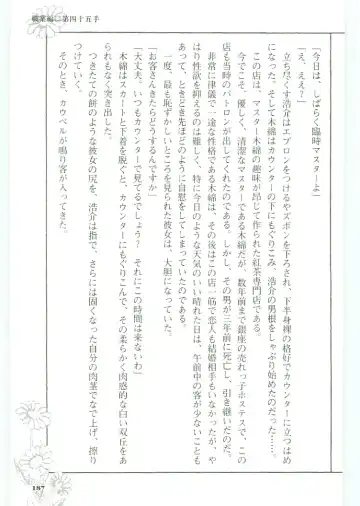 職業編□第四十五手
「今日は、しばらく臨時マスターよ」
「え、ええ？」
立ち尽くす浩介はエプロンをつけるやズボンを下ろされ、下半身裸の格好でカウンターに立つはめ
になった。そして木綿はカウンターの下にもぐりこみ、浩介の男根をしゃぶり始めたのだった……。
この店は、マスター木綿の趣味が昂じて作られた紅茶専門店である。
今でこそ、優しく、清潔なマスターである木綿だが、数年前まで銀座の売れっ子ホステスで、この
店も当時のパトロンが出してくれたのである。しかし、その男が三年前に死亡し、引き継いだのだ。
非常に律儀で一途な性格である木綿は、その後はこの店一筋で恋人も結婚相手もいなかったが、や
はり性欲を抑えるのは難しく、特に今日のような天気のいい晴れた日は、午前中の客が少ないことも
あって、ときどき先ほどのように自慰をしてしまっていたのである。
一度、最も恥ずかしいところを見られた彼女は、大胆になっていた。
「お客さんきたらどうするんですか」
「大丈夫。いつもカウンターで見てるでしょう？　それにこの時間は来ないわ」
木綿はスカートと下着を脱ぐと、カウンターにもぐりこんで、その柔らかく肉感的な白い双丘をあ
られもなく突き出した。
つきたての餅のような彼女の尻を、浩介は指で、さらには固くなった自分の肉茎でなで上げ、擦り
つけていく。
そのとき、カウベルが鳴り客が入ってきた。
187